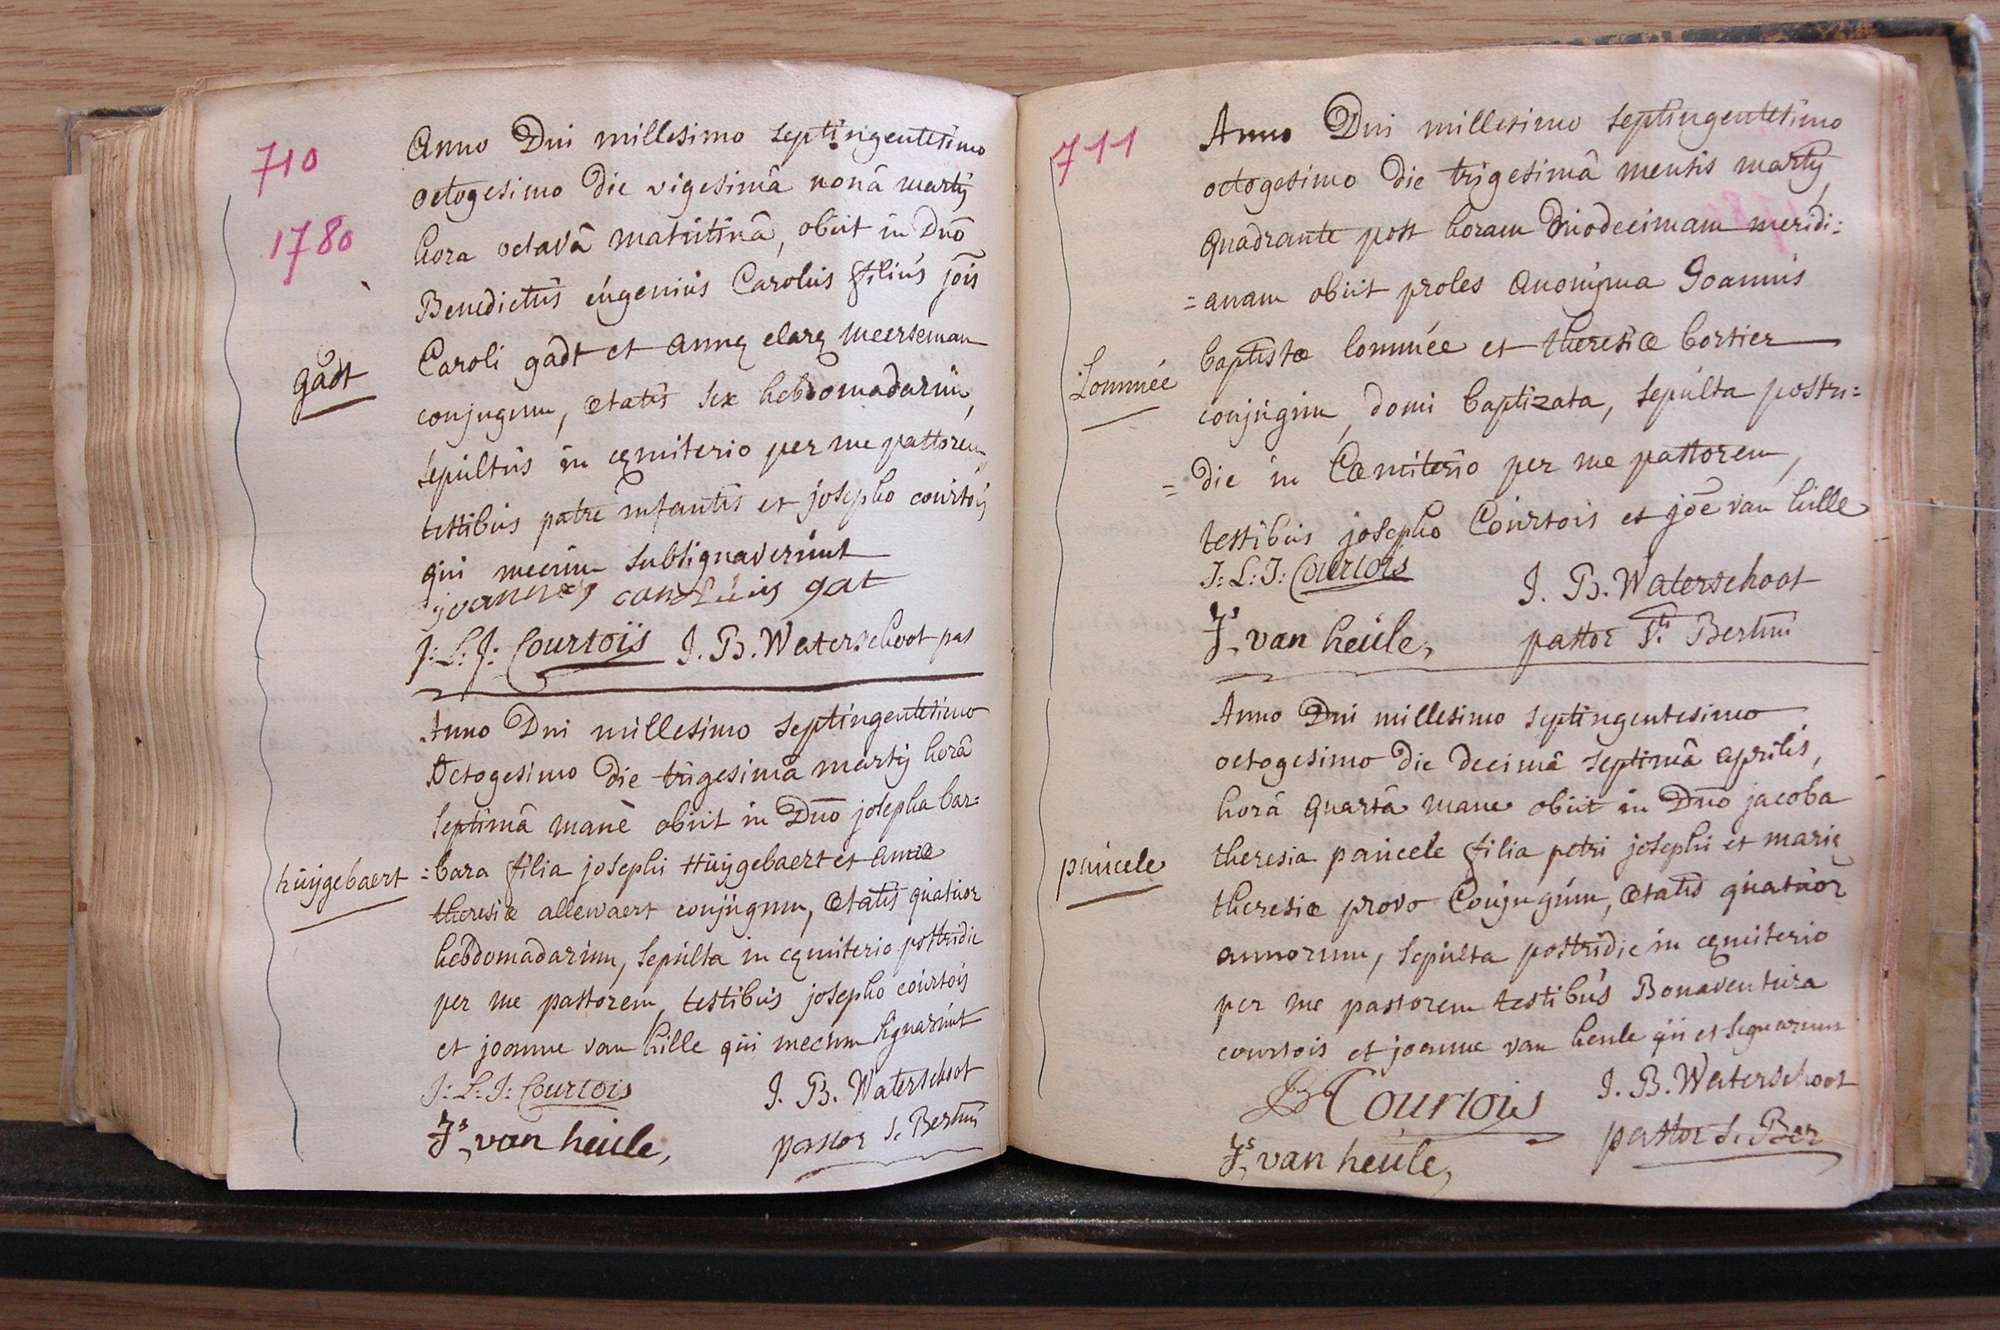 710
1780
Anno Dni millesimo septingentesimo
octogesimo die vigesimâ nonâ martÿ
hora octavâ matutinâ, obiit in Dno
Benedictus eugenius Carolus filius jois
gadt
Caroli gadt et annę clarę meerseman
conjugum, ætatis sex hebdomadarum,
sepultus in cęmiterio per me pastorem
testibus patre infantis et josepho courtois
qui mecum subsignaverunt
joannes gat
J: L: J: Courtoïs J. B. Waterschoot pas
Anno Dni millesimo septingentesimo
Octogesimo die trigesimâ martÿ horâ
septimâ manè obiit in Dno josepha bar=
huÿgebaert
=bara filia josephi Huÿgebaert et annæ
theresiæ allewaert conjugum, ætatis quatuor
hebdomadarum, sepulta in cęmiterio postridie
per me pastorem, testibus josepho courtois
et joanne van hille qui mecum signarunt
J: L: J: Courtois J. B. Waterschoot
Js, van heule, pastor S. Bertini
711
Anno Dni millesimo septingentesimo
octogesimo die trigesimâ mensis martÿ,
quadrante post horam duodecimam meridi=
=anam obiit proles anonyma Joannis
Lommée
baptistæ lommée et theresiæ bortier
conjugum, domi baptizata, sepulta postri=
=die in Cœmiterio per me pastorem,
testibus josepho Courtois et joe van hille
J: L: J: Courtois J. B. Waterschoot
Js, van heule, pastor Sti Bertini
Anno Dni millesimo septingentesimo
octogesimo die decimâ septimâ aprilis,
horâ quartâ mane obiit in Dno jacoba
paucele
theresia paucele filia petri josephi et marię
theresiæ provo Conjugum, ætatis quatuor
annorum, sepulta postridie in cęmiterio
per me pastorem testibus Bonaventura
courtois et joanne van heule qui et signarunt
B Courtois J. B. Waterschoot
Js, van heule, pastor S. Ber